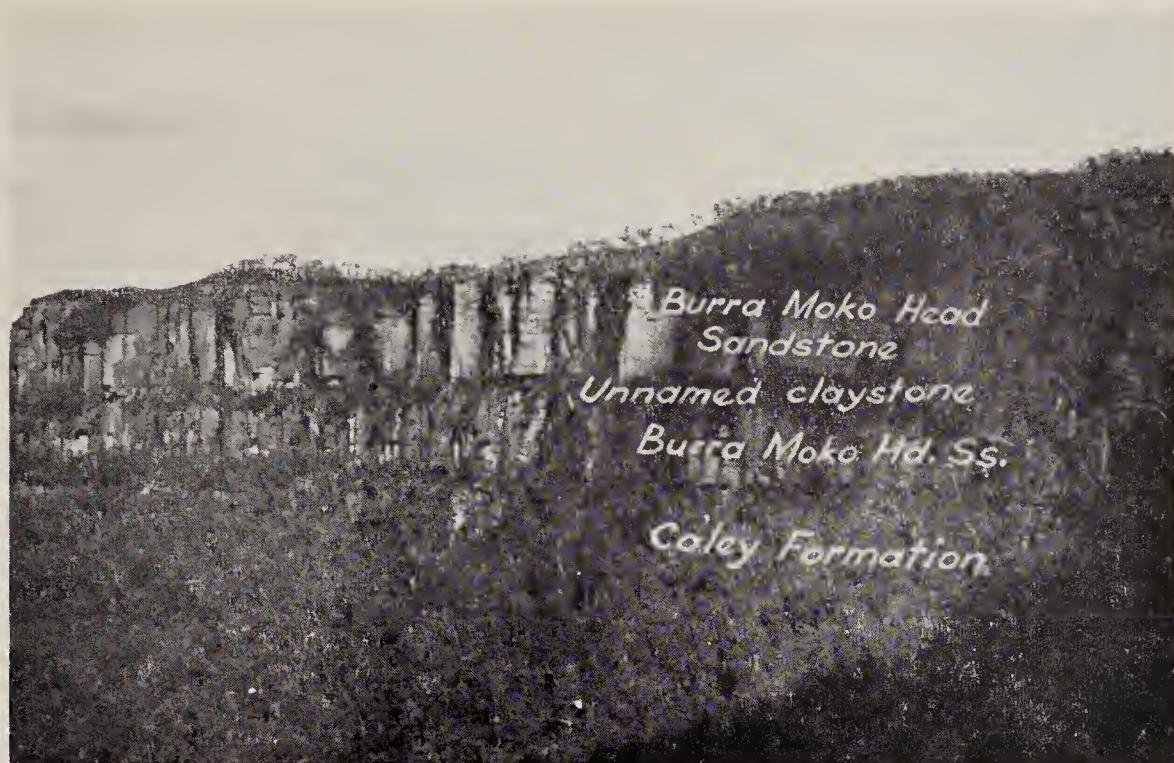 Burra Moko Head
Sandstone
Unnamed claystone
Burra Moko Hd. Ss.
Caley Formation